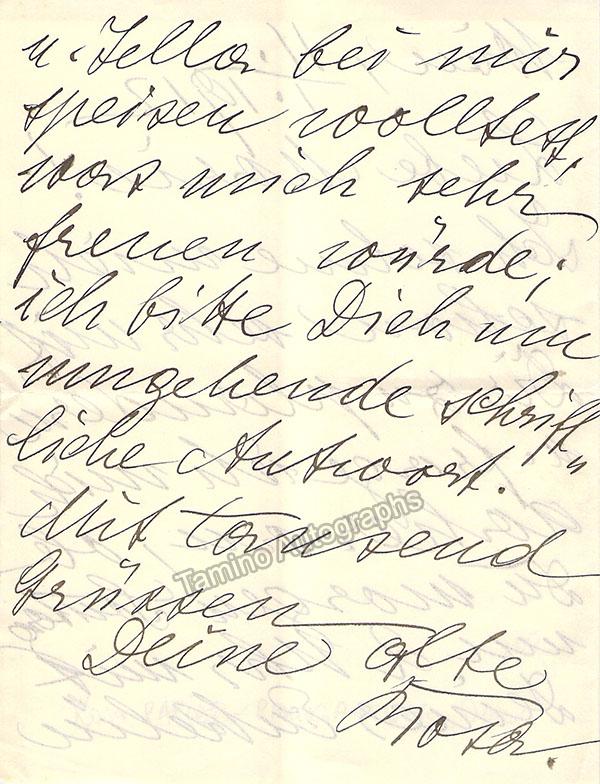 u. Jella bei mir
speisen wolltest,
was mich sehr
freuen würde;
ich bitte Dich um
umgehende schrift"
liche Antwort.
Mit tausend
Tamino Autographs
Grüssen
Deine alte
Rosa.